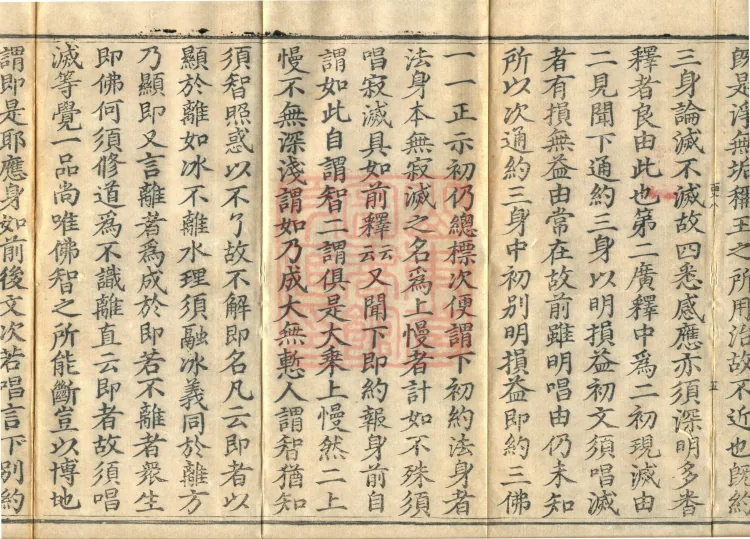 既是淨無垢稱王之所用治故不近也既約
三身論滅不滅故四悉感應亦須深明多沓
釋者良由此也第二廣釋中爲二初現滅由
二見聞下通約三身以明損益初文須唱滅
者有損無益由常在故前雖明唱由仍未知
所以次通約三身中初別明損益即約三佛
一一正示初仍總標次便謂下初約法身者
法身本無寂滅之名爲上慢者計如不殊須
唱寂滅具如前釋云云又聞下即約報身前自
謂如此自謂智二謂俱是大乘上慢然二上
慢不無深淺謂如乃成大無慙人謂智猶知
須智照惑以不了故不解即名凡云即者以
顯於離如冰不離水理須融冰義同於離方
乃顯即又言離者爲成於即若不離者衆生
即佛何須修道爲不識離直云即者故須唱
滅等覺一品尚唯佛智之所能斷豈以博地
謂即是耶應身如前後文次若唱言下別約